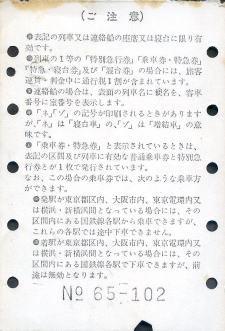 (ご注意)
●表記の列車又は連絡船の座席又は寝台に限り有
効です。
●列車の1等の「特別急行券」「乗車券・特急券」
「特急・寝台券」及び「寝台券」の場合には、旅客運
賃・料金中に通行税1割が含まれています。
●連絡船の場合は、表面の列車名に船名を、客車
番号に室番号を表示します。
●「ネ」「ゾ」の記号が印刷されるときがあります
が、「ネ」は「寝台車」の、「ゾ」は「増結車」の意
味です。
●「乗車券・特急券」と表示されているときは、
表記の区間及び列車に有効な普通乗車券と特別急
行券とが1枚で発行されています。
なお、この場合の乗車券では、次のような乗車方
ができます。
●発駅が東京都区内、大阪市内、東京電環内又
は横浜・新横浜間となっている場合には、その
区間内にある国鉄線各駅から乗車できますが、
これらの各駅では途中下車できません。
●着駅が東京都区内、大阪市内、東京電環内又
は横浜・新横浜間となっている場合には、その
区間内にある国鉄線各駅で下車できますが、前
途は無効となります。
No 65-102